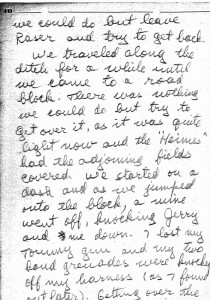 we could do but leave
Roser and try to get back.
We traveled along the
ditch for a while until
we came to a road
block. There was nothing
we could do but try to
get over it, as it was quite
light now and the "Heinies"
had the adjoining fields
covered. We started on a
dash and as we jumped
onto the block, a mine
went off, knocking Jerry
and me down. I lost my
Tommy gun and my two
hand grenades were knocked
off my harness (as I found
out later). Getting over the